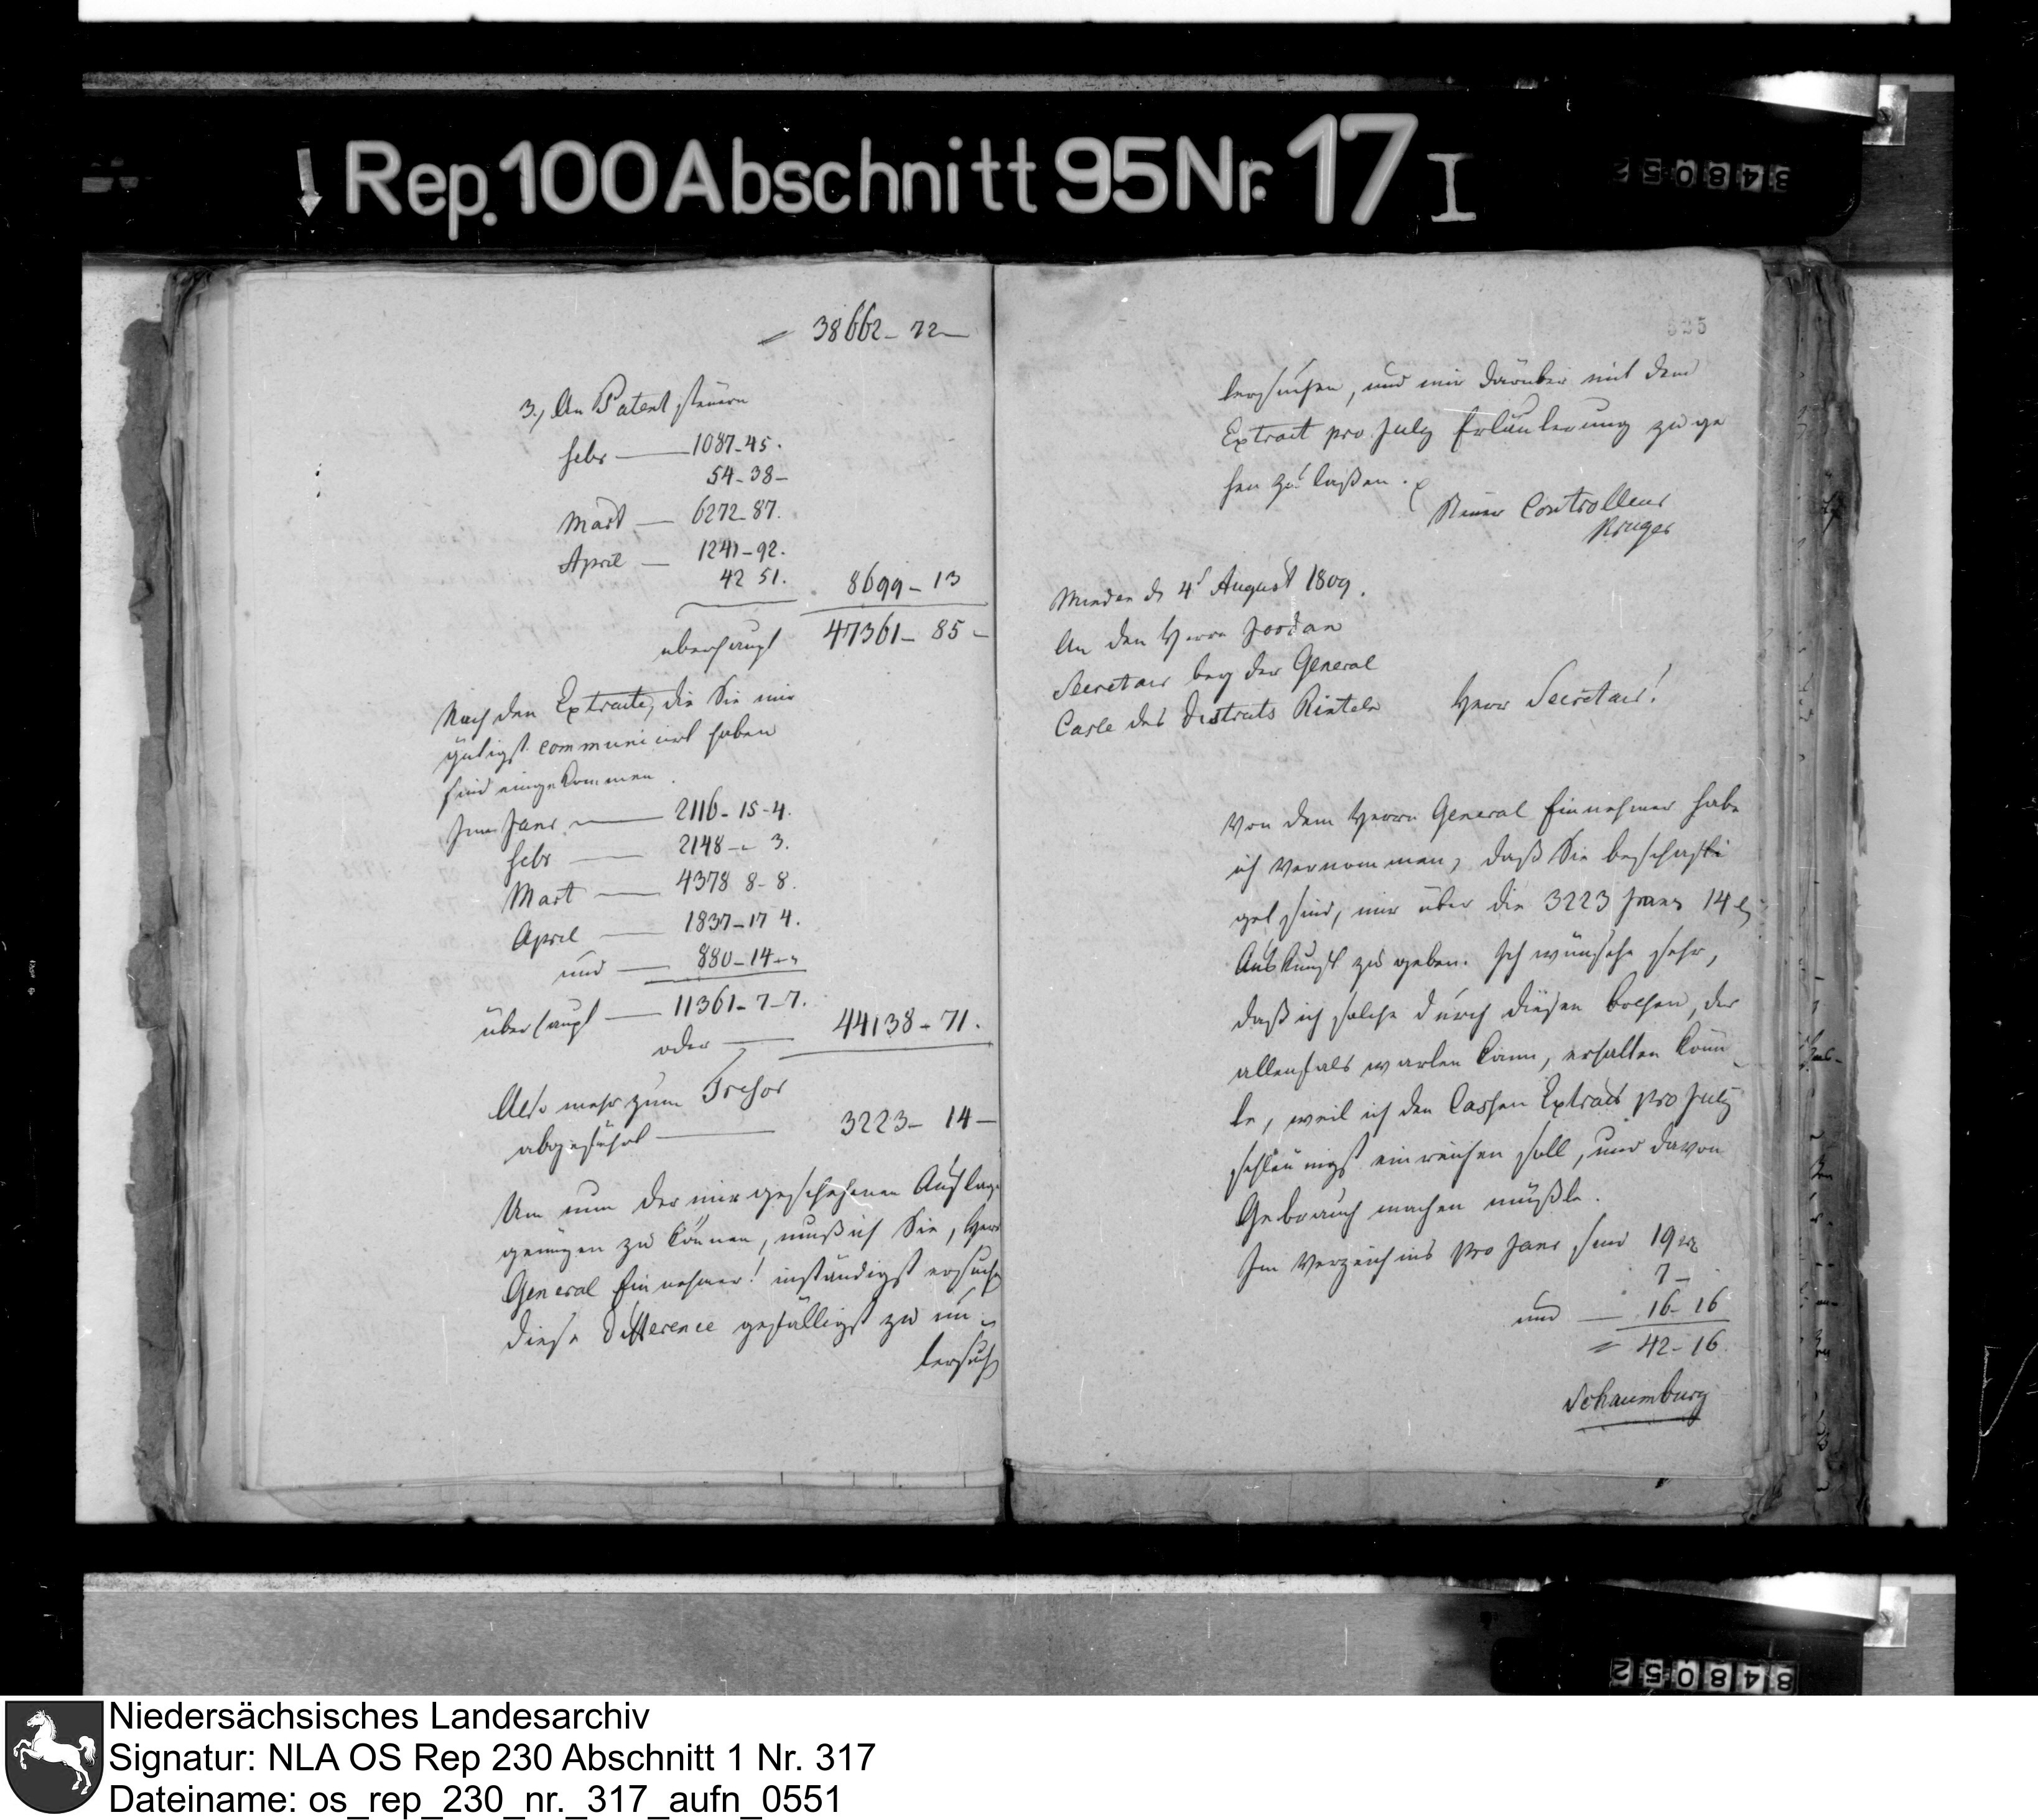 ↓ Rep. 100 Abschnitt 95 Nr. 17 I
348052
= 38662 - 72
3., An Patent steuern
Febr — 1087 - 45.
54 - 38 -
Mart — 6272 - 87.
April — 1241 - 92.
42 51. 8699 - 13
überhaupt 47361 - 85 -
Nach den Extracte, die Sie mir
gütigst communicirt haben
sind eingekommen.
Janr — 2116 - 15 - 4.
Febr — 2148 - - 3.
Mart — 4378 8 - 8.
April — 1837 - 17 4.
und — 880 - 14 - -
überhaupt — 11361 - 7 - 7.
oder — 44138 - 71.
Also mehr zum Tresor
abgeführt — 3223 - 14 -
Um nun der mir geschehenen Auflage
genügen zu können, muß ich Sie, Herr
General Einnehmer! inständigst ersuche
diese Difference gefälligst zu un-
tersuch
325
tersuchen, und mir darüber mit dem
Extract pro July Erläuterung zu ge
hen zu laßen.
Steuer Controlleur
Krüger
Minden d. 4t August 1809.
An den Herrn Jordan
Secretair bey der General
Casse des Districts Rinteln
Herr Secretair!
Von dem Herrn General Einnehmer habe
ich vernommen, daß Sie beschäfti
get sind, mir über die 3223 Francs 14
Auskunft zu geben. Ich wünsche sehr,
daß ich solche durch diesen Bothen, der
allenfals warten kann, erhalten könn-
te, weil ich den Cassen Extract pro July
schleunigst einreichen soll, und davon
Gebrauch machen müßte.
Im Verzeichniß pro Janr sind 19
7 -
und — 16 - 16
= 42 - 16
Schaumburg
348052
Niedersächsisches Landesarchiv
Signatur: NLA OS Rep 230 Abschnitt 1 Nr. 317
Dateiname: os_rep_230_nr._317_aufn_0551